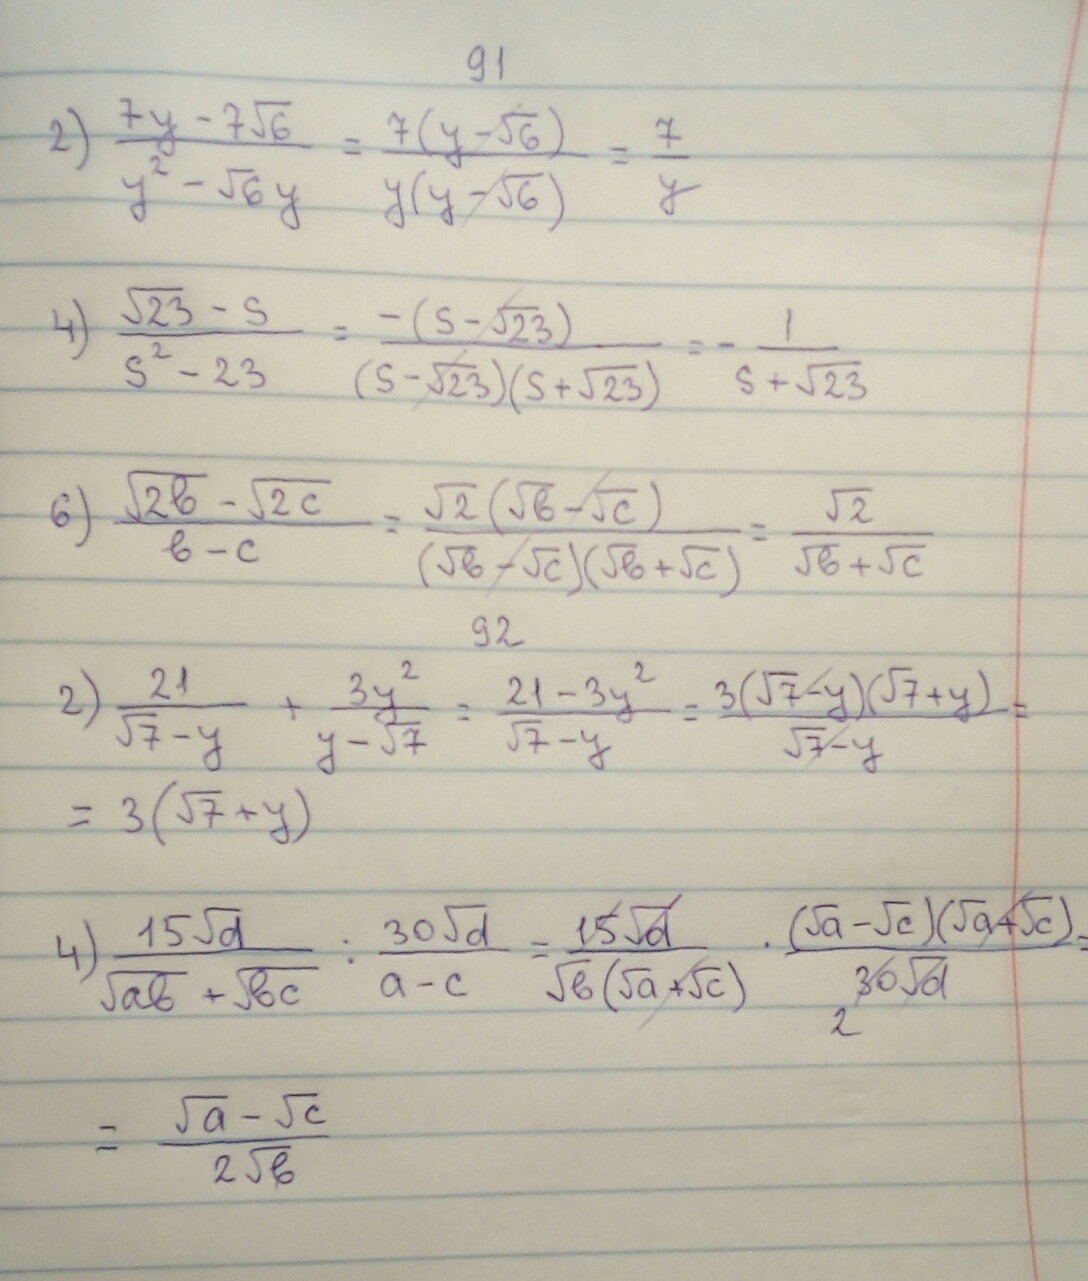 91
2) (7y - 7√6)/(y² - √6y) = 7(y - √6)/y(y - √6) = 7/y
4) (√23 - s)/(s² - 23) = -(s - √23)/(s - √23)(s + √23) = - 1/(s + √23)
6) (√2b - √2c)/(b - c) = √2(√b - √c)/(√b - √c)(√b + √c) = √2/(√b + √c)
92
2) 21/(√7 - y) + 3y²/(y - √7) = (21 - 3y²)/(√7 - y) = 3(√7 - y)(√7 + y)/(√7 - y) =
= 3(√7 + y)
4) 15√d/(√ab + √bc) : 30√d/(a - c) = 15√d/√b(√a + √c) · (√a - √c)(√a + √c)/30√d =
2
= (√a - √c)/2√b